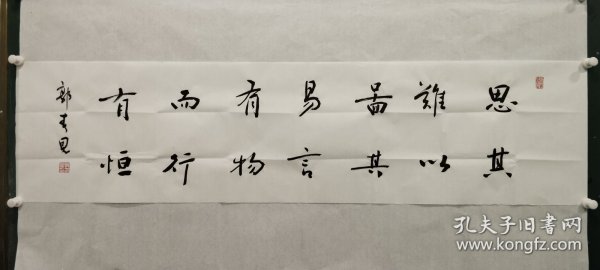 思其
難以
啚其
易言
有物
而行
有恒
郭
孔夫子旧书网
www.kongfz.com